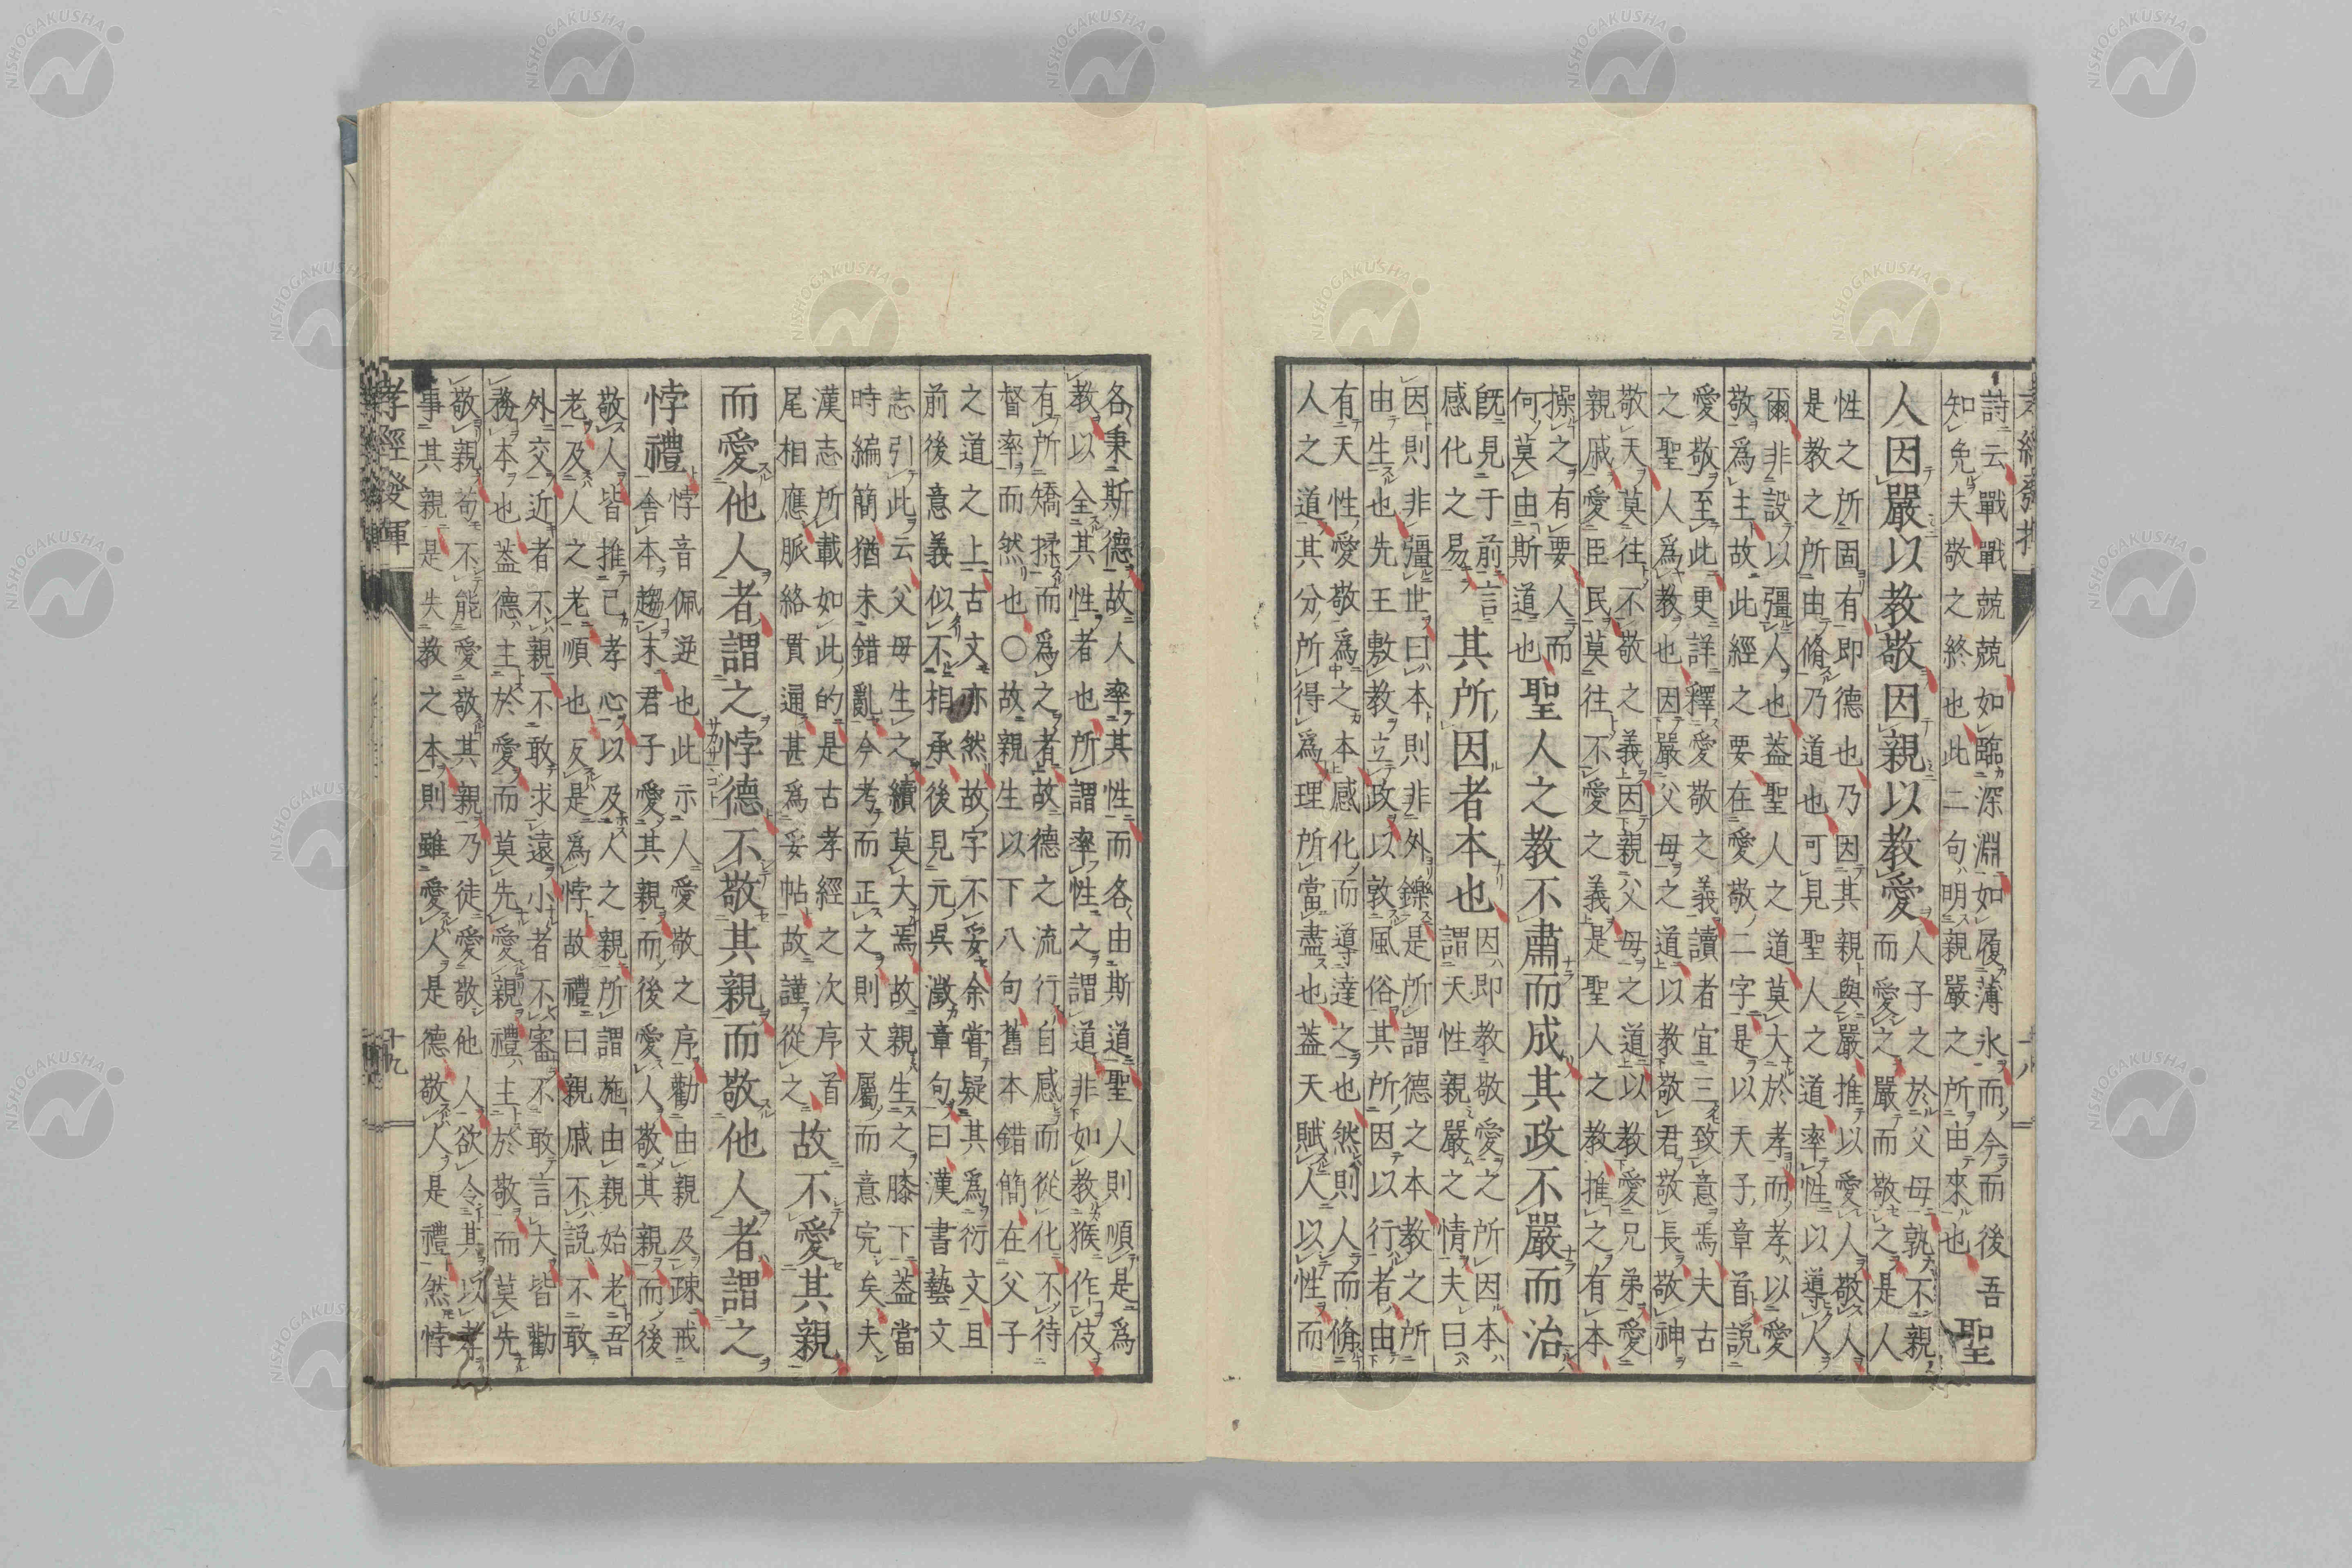 詩云戰戰兢兢如臨深淵如履薄氷而今而後吾
知免夫敬之終也此二句明親嚴之所由來也
聖
人因嚴以教敬因親以教愛
人子之於父母孰不親
而愛之嚴而敬之是人
性之所固有即德也乃因其親與嚴推以愛人敬人
是教之所由脩乃道也可見聖人之道率性以導人
爾非設以彊人也葢聖人之道莫大於孝而孝以愛
敬為主故此經之要在愛敬二字是以天子章首説
愛敬至此更詳釋愛敬之義讀者宜三致意焉夫古
之聖人為教也因嚴父母之道以教敬君敬長敬神
敬天莫往不敬之義因親父母之道以教愛兄弟愛
親戚愛臣民莫往不愛之義是聖人之教推之有本
操之有要人而
何莫由斯道也
聖人之教不肅而成其政不嚴而治
既見于前言
感化之易
其所因者本也
因即教敬愛之所因本
謂天性親嚴之情夫曰
因則非彊世曰本則非外鑠是所謂德之本教之所
由生也先王敷教立政以敦風俗其所因以行者由
有天性愛敬為之本感化而導達之也然則人而脩
人之道其分所得為理所當盡也葢天賦人以性而
各秉斯德故人率其性而各由斯道聖人則順是為
教以全其性者也所謂率性之謂道非如教猴作伎
有所矯揉而為之者故德之流行自感而從化不待
督率而然也〇故親生以下八句舊本錯簡在父子
之道之上古文亦然故字不妥余甞疑其為衍文且
前後意義似不相承後見元吳澂章句曰漢書藝文
志引此云父母生之續莫大焉故親生之膝下葢當
時編簡猶未錯亂今考而正之則文屬而意完矣夫
漢志所載如此的是古孝經之次序首
尾相應脈絡貫通甚為妥帖故謹從之
故不愛其親
而愛他人者謂之悖德不敬其親而敬他人者謂之
悖禮
悖音佩逆也此示人愛敬之序勸由親及疎戒
舍本趨末君子愛其親而後愛人敬其親而後
敬人皆推己孝心以及人之親所謂施由親始老吾
老及人之老順也反是為悖故禮曰親戚不説不敢
外交近者不親不敢求遠小者不審不敢言大皆勸
務本也葢德主於愛而莫先愛親禮主於敬而莫先
敬親苟不能愛敬其親乃徒愛敬他人欲令其以孝
事其親是失教之本則雖愛人是德敬人是禮然悖
孝經發揮
十九